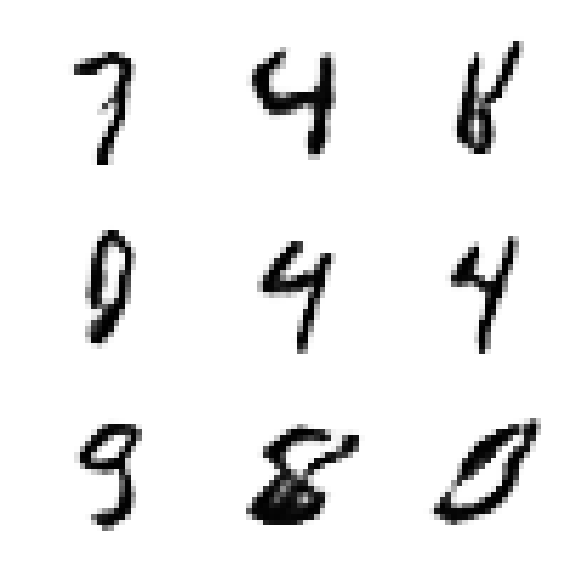 7 4 8
0 4 4
9 8 0